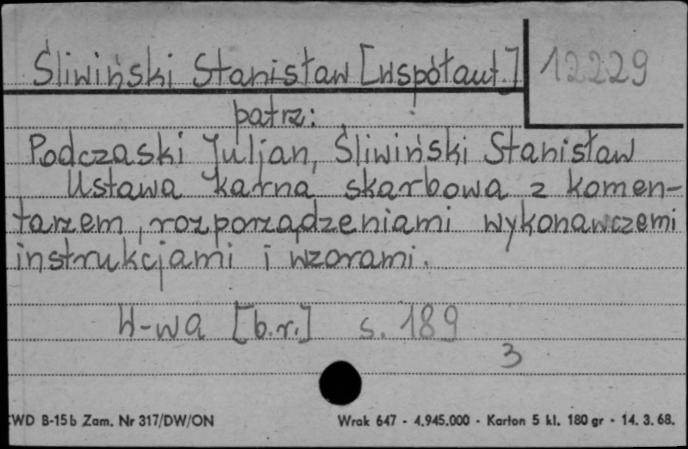 Śliwiński Stanisław [współaut.] 12229
patrz:
Podczaski Juljan, Śliwiński Stanisław
Ustawa karna skarbowa z komen-
tarzem, rozporządzeniami wykonawczemi
instrukcjami i wzorami.
W-wa [b.r.] s. 189
3
CWD B-15b Zam. Nr 317/DW/ON Wrak 647 - 4.945.000 - Karton 5 kl. 180 gr - 14. 3. 68.